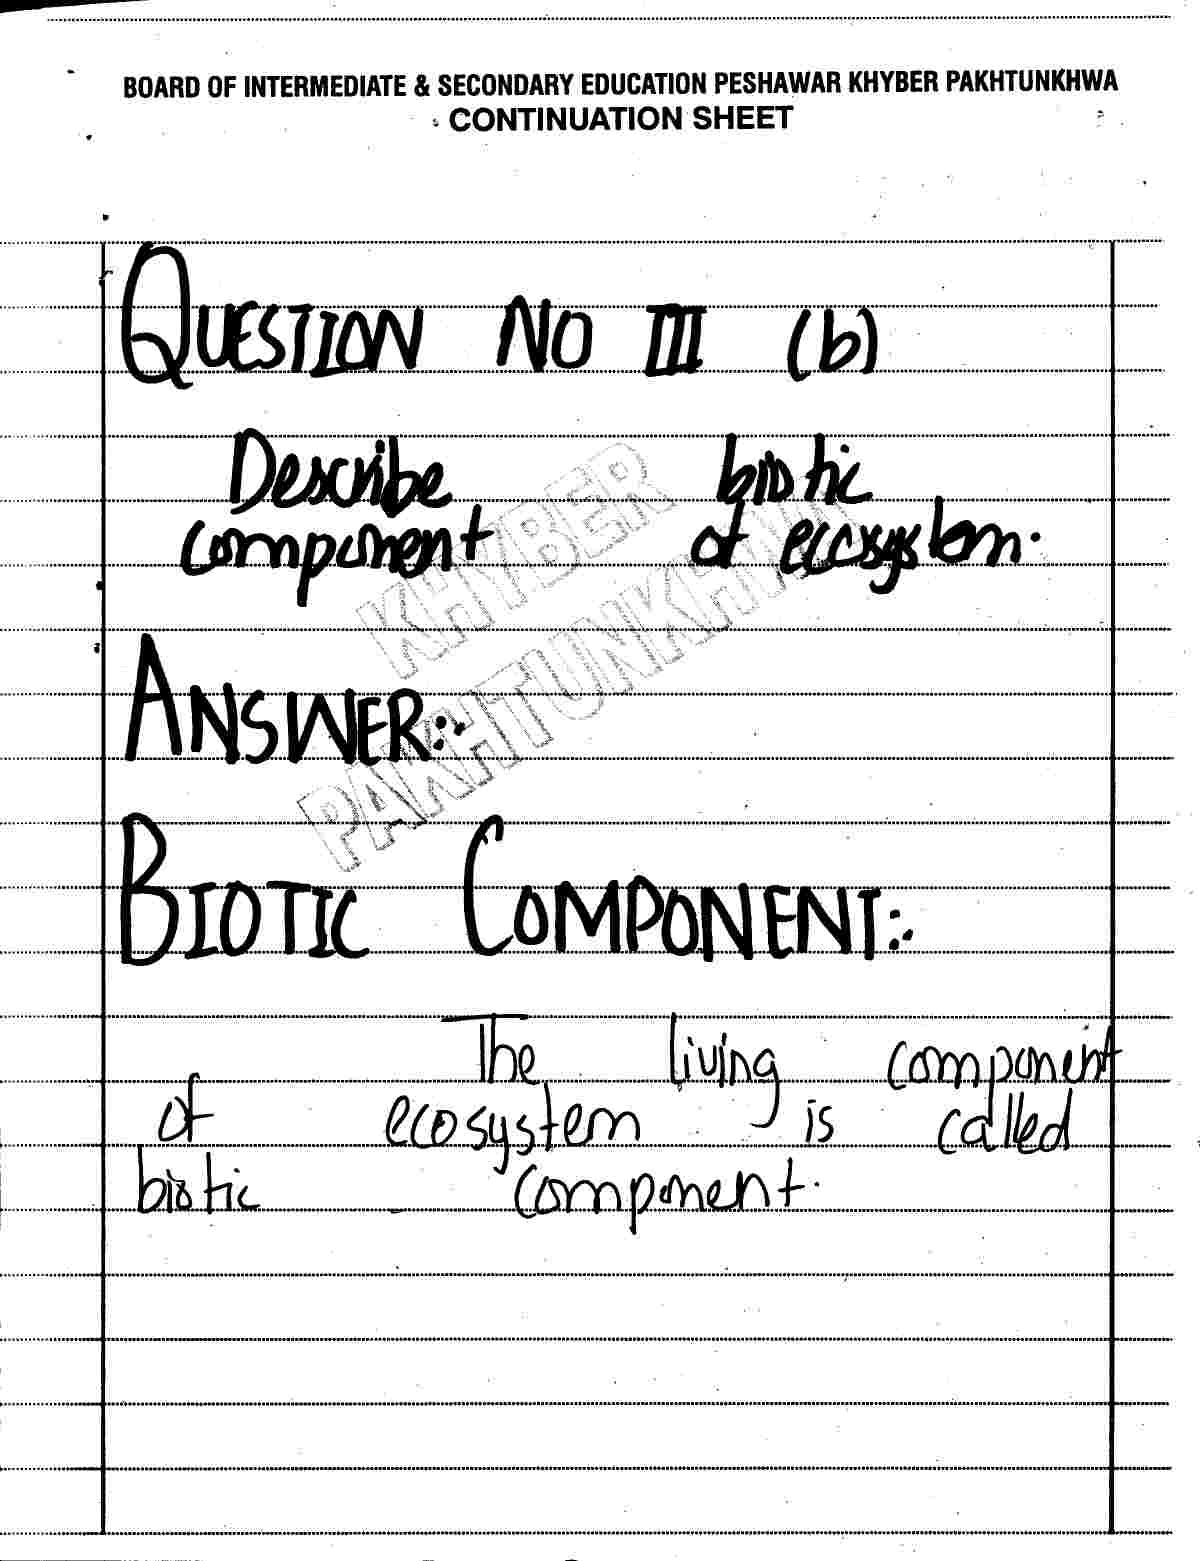 BOARD OF INTERMEDIATE & SECONDARY EDUCATION PESHAWAR KHYBER PAKHTUNKHWA
CONTINUATION SHEET
QUESTION NO III (b)
Describe biotic
component of ecosystem.
KHYBER
PAKHTUNKHWA
ANSWER:-
BIOTIC COMPONENT:-
The living component
of ecosystem is called
biotic component.